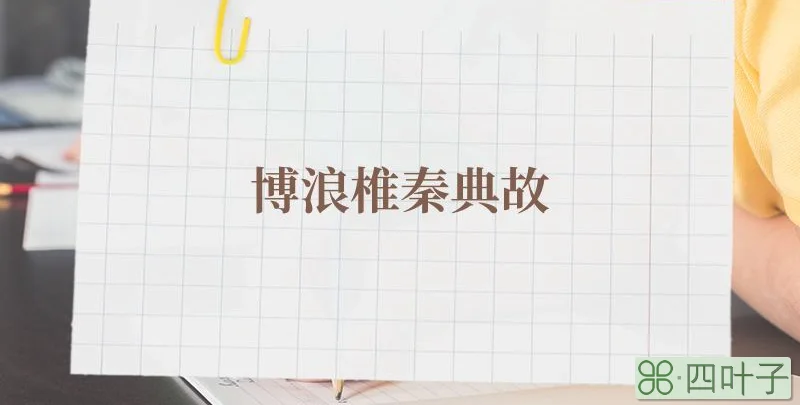 博浪椎秦典故
四叶子